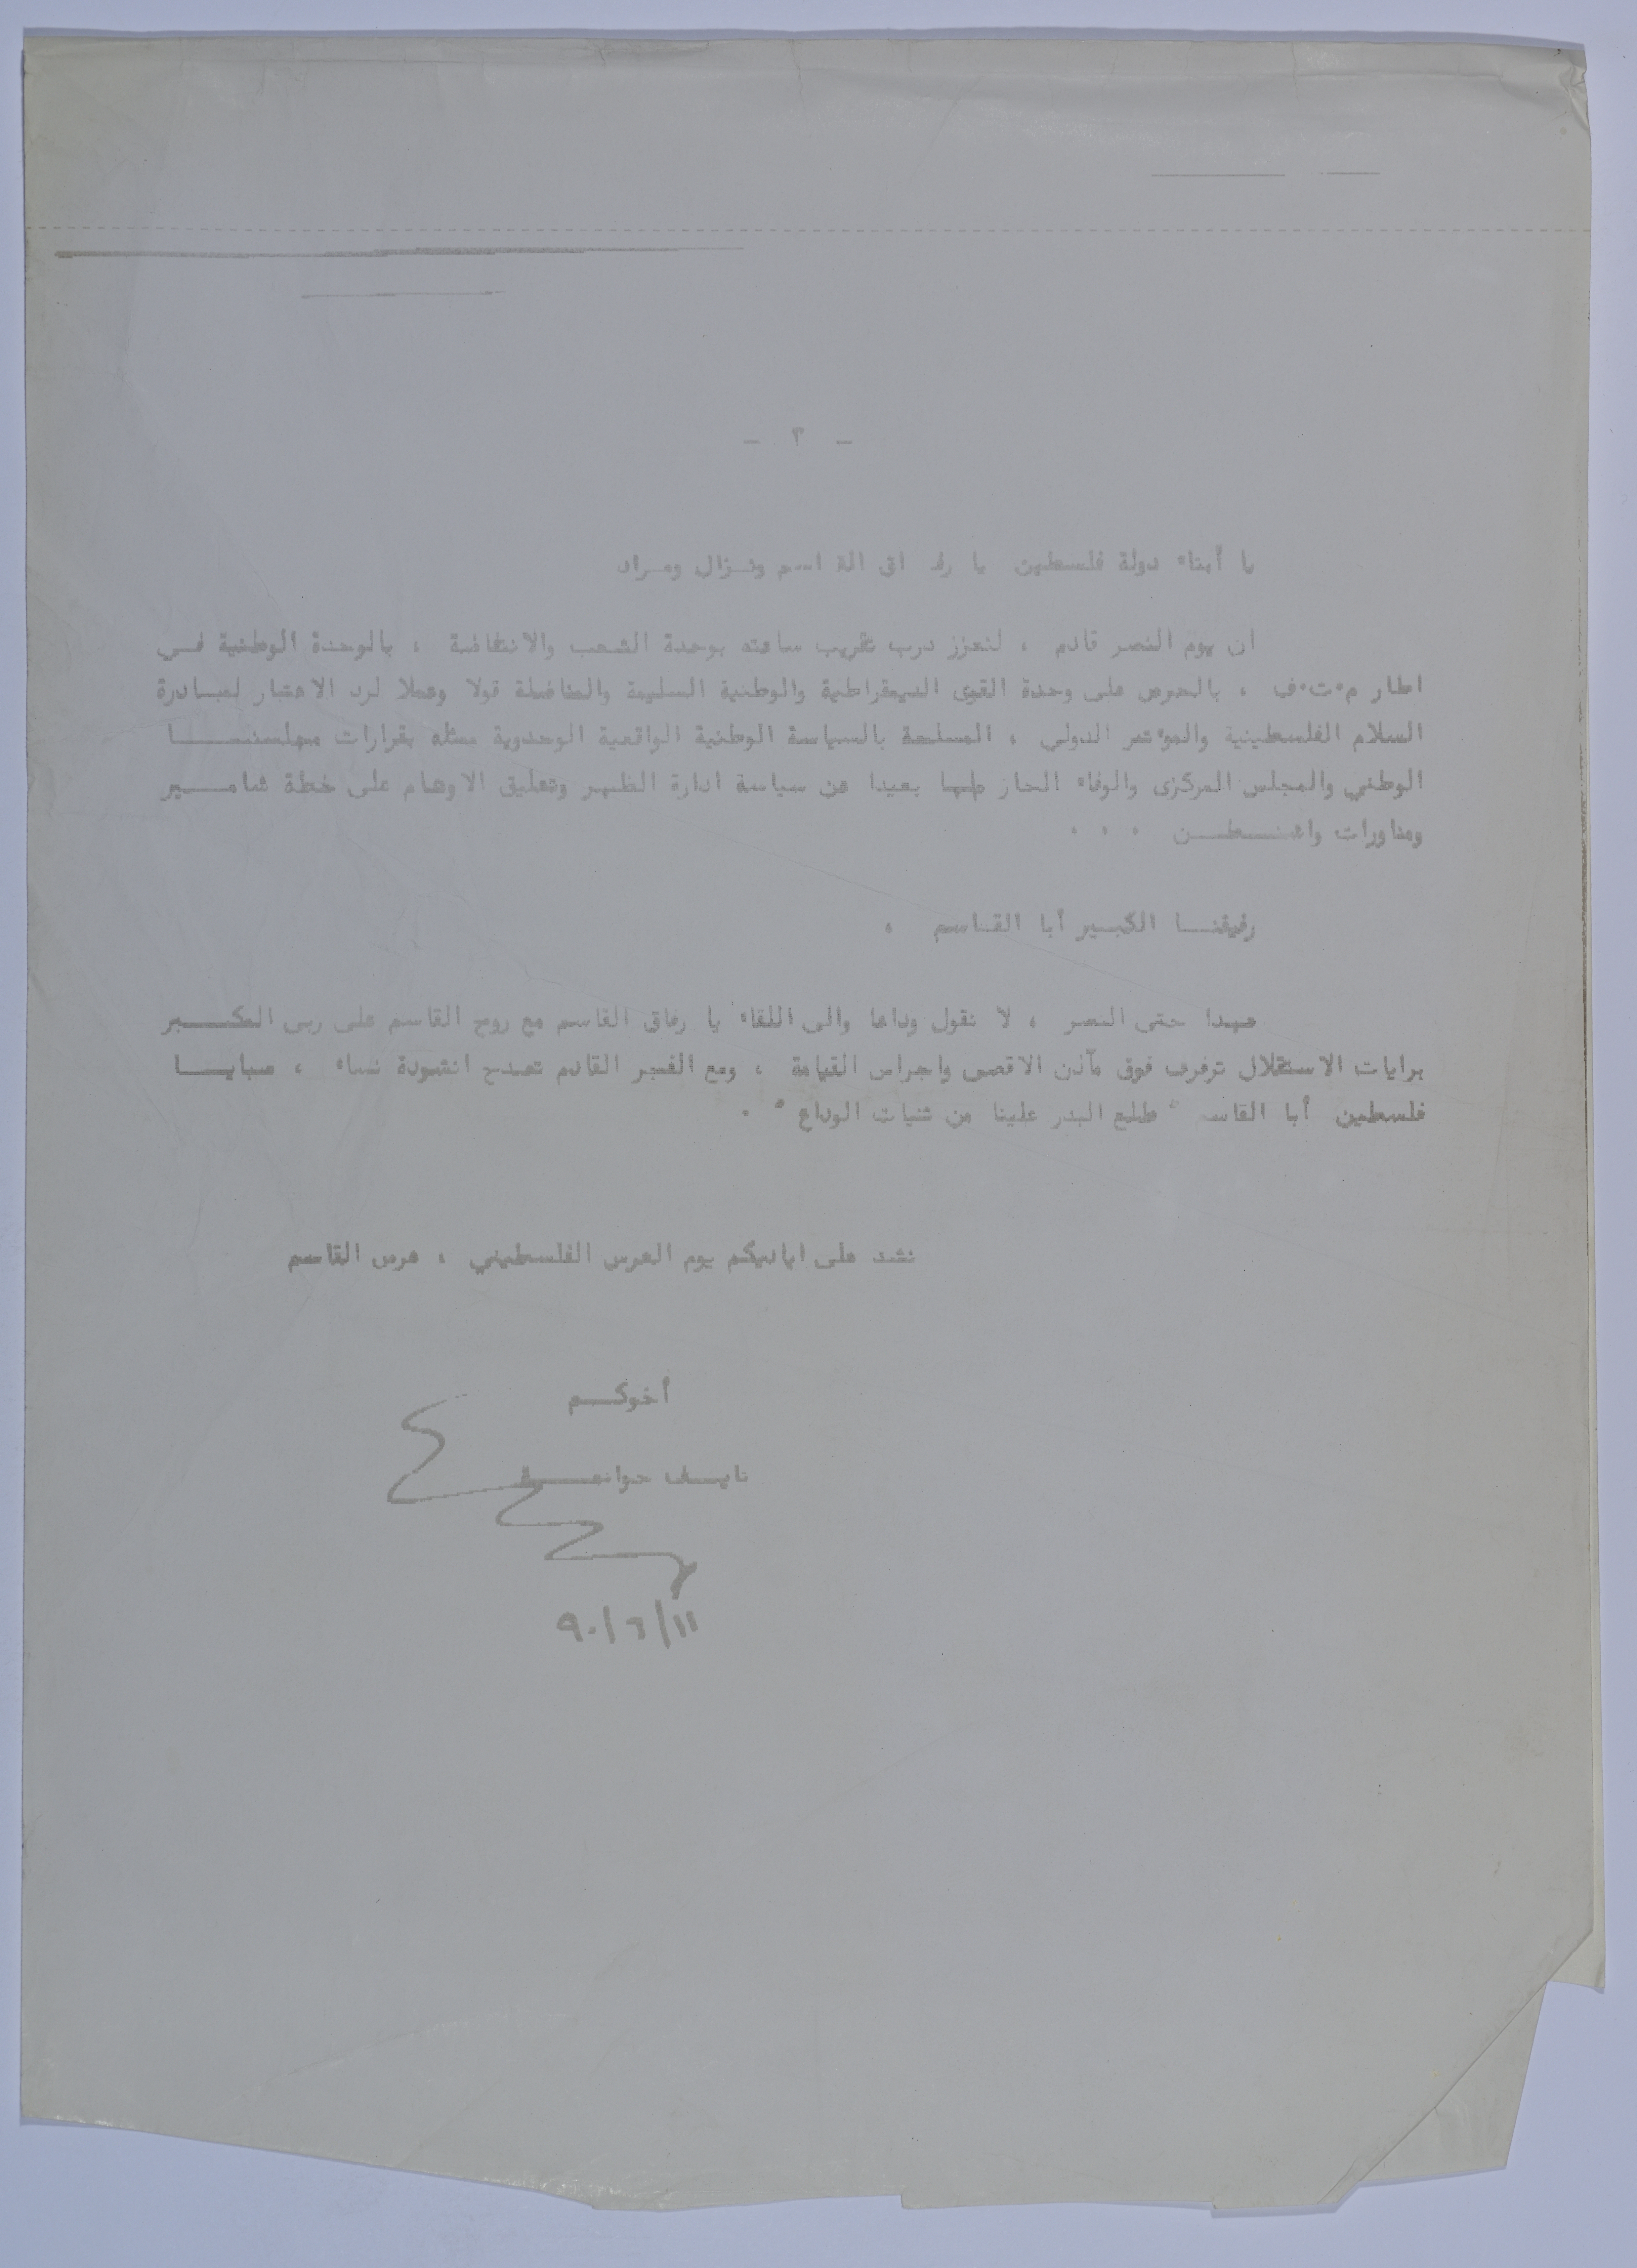 - ٣ -
يا أبناء دولة فلسطين يا رفاق القاسم ونـزال ومـراد
ان يوم النصر قادم ، لنعزز درب تقريب ساعته بوحدة الشعب والانتفاضة ، بالوحدة الوطنية فـي
اطار م٠ت٠ف ، بالحرص على وحدة القوى الديمقراطية والوطنية السليمة والمناضلة قولا وعملا لرد الاعتبار لمبـادرة
السلام الفلسطينية والمؤتمر الدولي ، المسلحة بالسياسة الوطنية الواقعية الوحدوية ممثلة بقرارات مجلسنـــا
الوطني والمجلس المركزى والوفاء الحازم لها بعيدا عن سياسة ادارة الظهر وتعليق الاوهام على خطة شامـــير
ومناورات واشنـطـن ٠ ٠ ٠
رفيقنــا الكبـير أبا القـاسم ،
عهدا حتى النصر ، لا نقول وداعا والى اللقاء يا رفاق القاسم مع روح القاسم على ربى المكـــبر
برايات الاستقلال ترفرف فوق مآذن الاقصى واجراس القيامة ، ومع الفجر القادم تصدح انشودة نساء ، صبايــا
فلسطين أبا القاسم " طلع البدر علينا من ثنيات الوداع " ٠
نشد على اياديكم يوم العرس الفلسطيني ، عرس القاسم
أخوكــم
نايـف حواتمـــة
٩٠/٦/١١